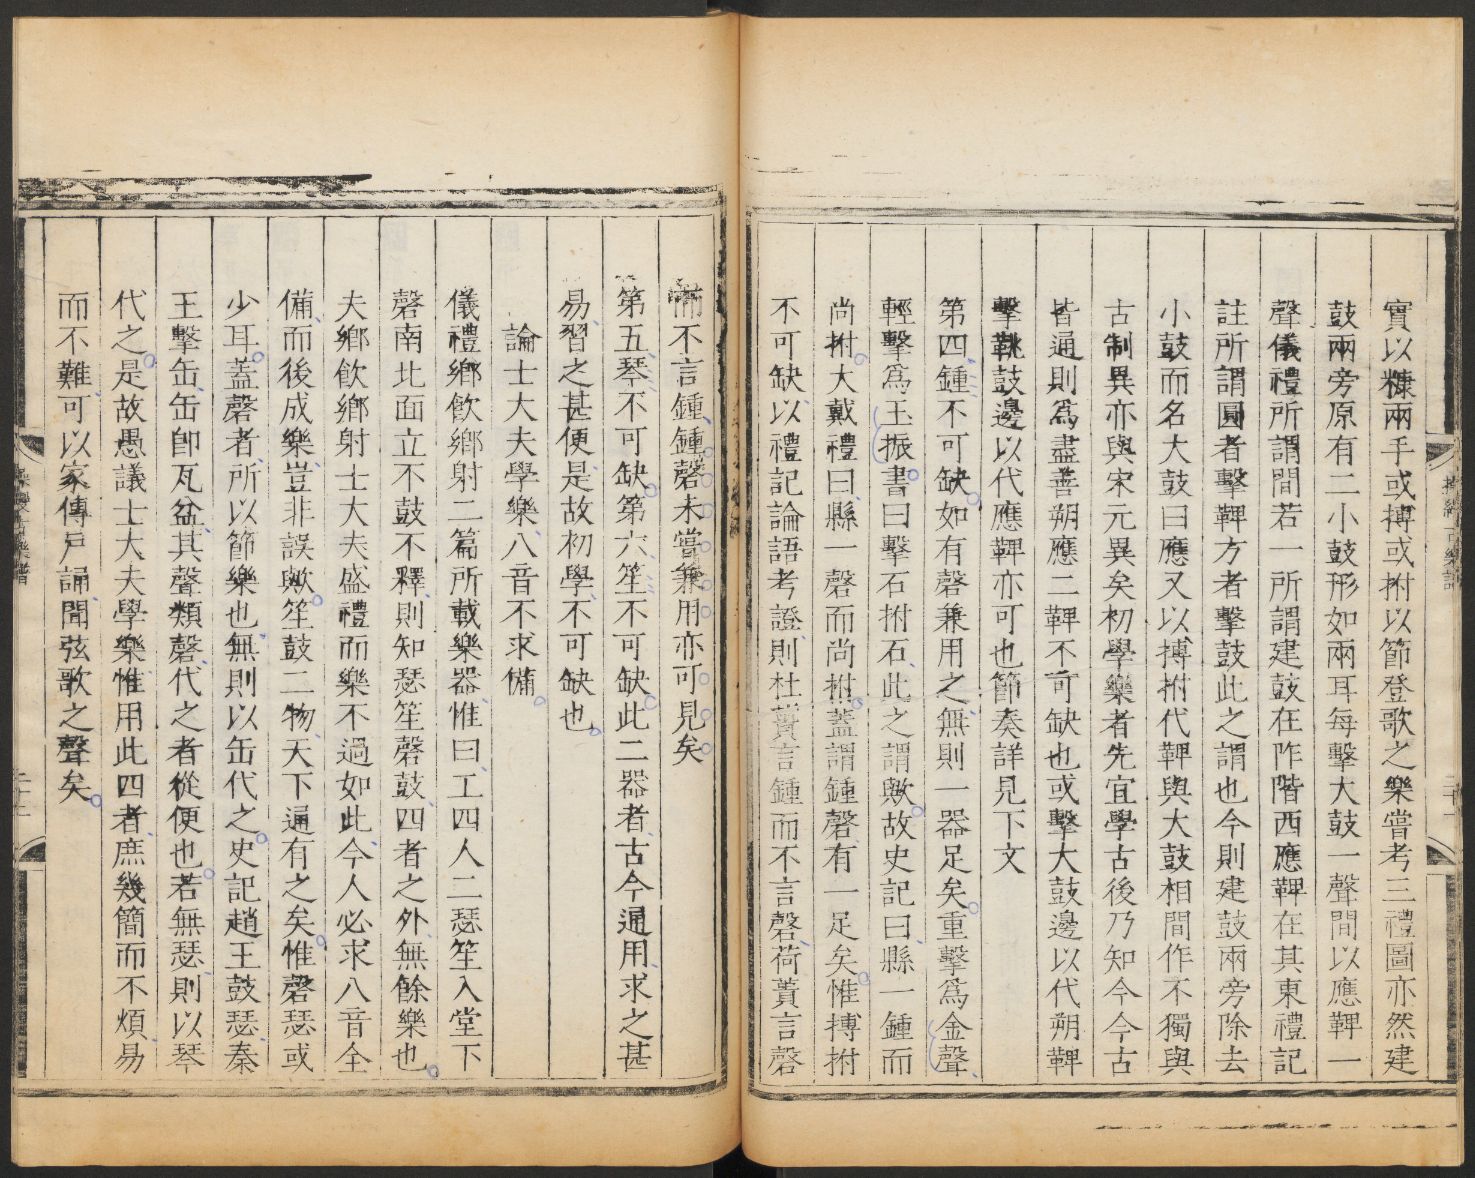 實以糠兩手或搏或拊以節登歌之樂嘗考三禮圖亦然建
鼓兩旁原有二小鼓形如兩耳每擊大鼓一聲間以應鞞一
聲儀禮所謂間若一所謂建鼓在阼階西應鞞在其東禮記
註所謂圓者擊鞞方者擊鼓此之謂也今則建鼓兩旁除去
小鼓而名大鼓曰應又以搏拊代鞞與大鼓相間作不獨與
古制異亦與宋元異矣初學樂者先宜學古後乃知今今古
皆通則爲盡善朔應二鞞不可缺也或擊大鼓邊以代朔鞞
擊鼗鼓邊以代應鞞亦可也節奏詳見下文
第四鍾不可缺如有磬兼用之無則一器足矣重擊爲金聲
輕擊爲玉振書曰擊石拊石此之謂歟故史記曰縣一鍾而
尚拊大戴禮曰縣一磬而尚拊蓋謂鍾磬有一足矣惟搏拊
不可缺以禮記論語考證則杜蕢言鍾而不言磬荷蕢言磬
而不言鍾鍾磬未嘗兼用亦可見矣
第五琴不可缺第六笙不可缺此二器者古今通用求之甚
易習之甚便是故初學不可缺也
論士大夫學樂八音不求備
儀禮鄉飲鄉射二篇所載樂器惟曰工四人二瑟笙入堂下
磬南北面立不鼓不釋則知瑟笙磬鼓四者之外無餘樂也
夫鄉飲鄉射士大夫盛禮而樂不過如此今人必求八音全
備而後成樂豈非誤歟笙鼓二物天下通有之矣惟磬瑟或
少耳蓋磬者所以節樂也無則以缶代之史記趙王鼓瑟秦
王擊缶缶卽瓦盆其聲類磬代之者從便也若無瑟則以琴
代之是故愚議士大夫學樂惟用此四者庶幾簡而不煩易
而不難可以家傳戶誦聞弦歌之聲矣